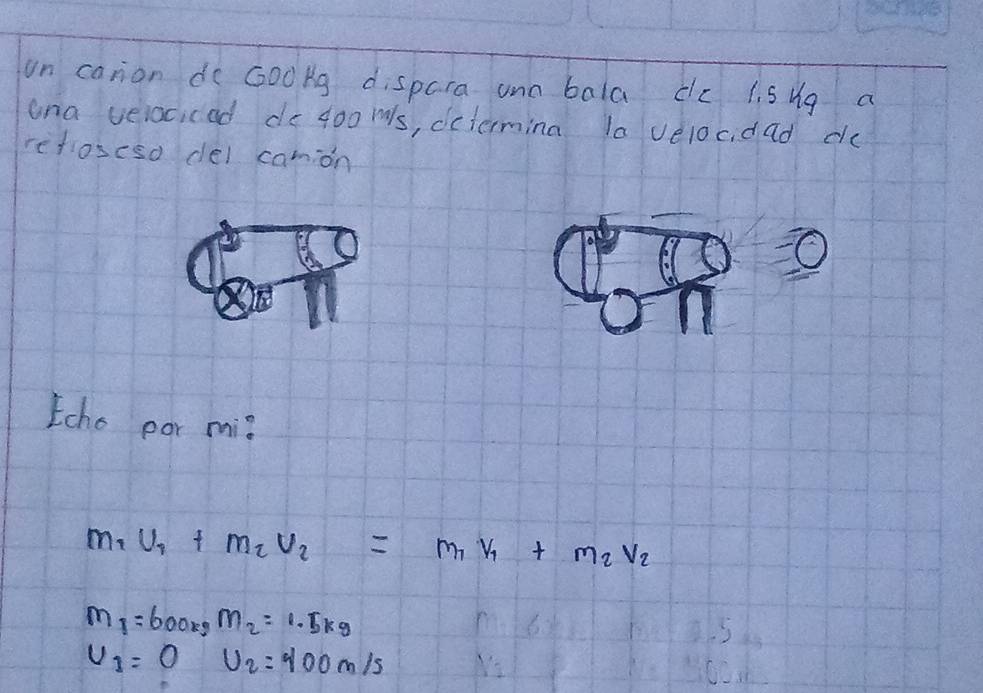 un cañon de 600 Kg dispara una bala de 1.5 Kg a
una velocidad de 400 m/s, determina la velocidad de
retroseso del camión
Echo por mi:
m₁ U₁ + m₂ U₂ = m₁ V₁ + m₂ V₂
m₁ = 600kg m₂ = 1.5kg
U₁ = 0 U₂ = 400 m/s